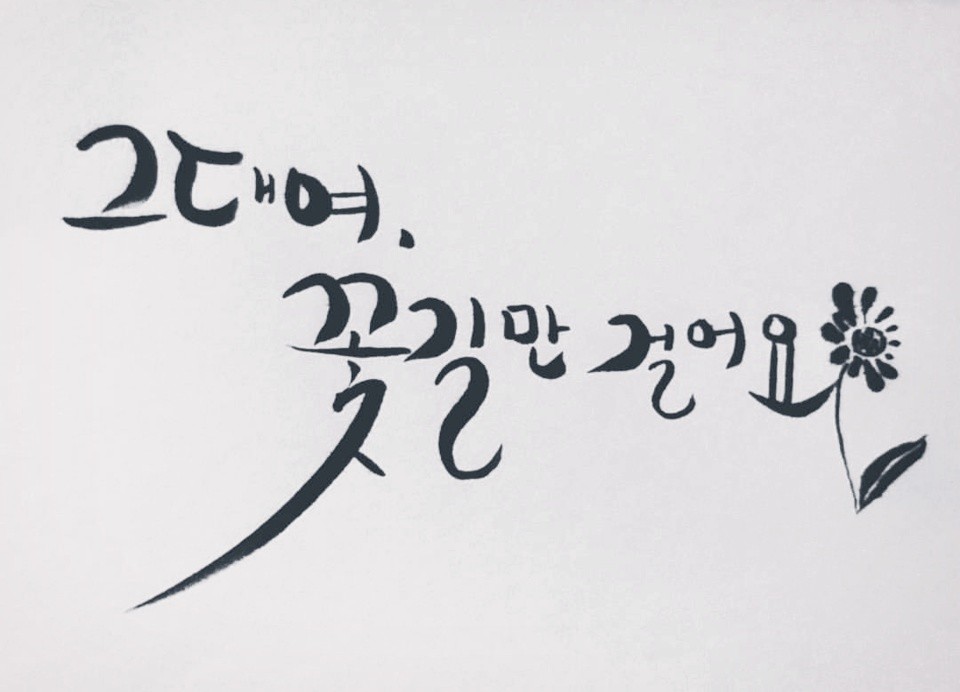 그대여.
꽃길만 걸어요